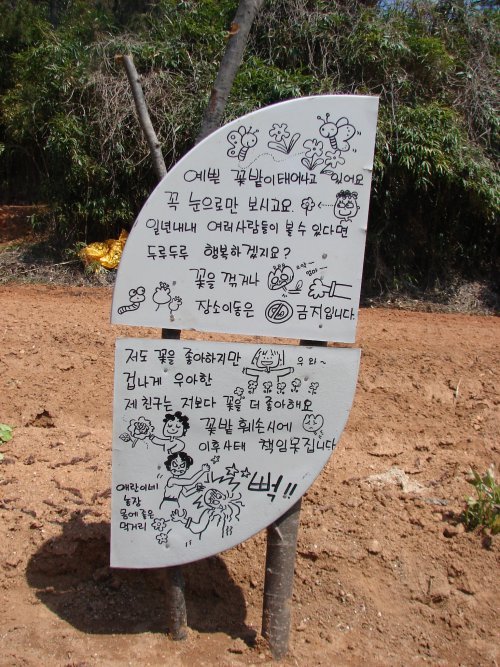 예쁜 꽃밭이 태어나고 있어요
꼭 눈으로만 보시고요.
일년내내 여러사람들이 볼수 있다면
두루두루 행복하겠지요?
꽃을 꺾거나
장소이동은 금지입니다.
저도 꽃을 좋아하지만 우와~
겁나게 우아한
제 친구는 저보다 꽃을 더 좋아해요
꽃밭 훼손시에
이후사태 책임못집니다
퍽!!
애란이네
농장
몸에좋은
먹거리